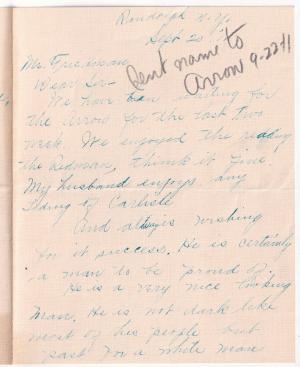 Randolph N.Y.
Sept 20
Mr. Friedman
Dear Sir-
Sent name to
Arrow 9-22-11
We have been waiting for
the Arrow for the last two
week. We enjoyed the reading
the Redman, think it fine.
My husband enjoys any
tiding of Carlisle
And always wishing
for it success. He is certainly
a man to be proud of.
He is a very nice looking
man. He is not dark like
most of his people but
past for a white man